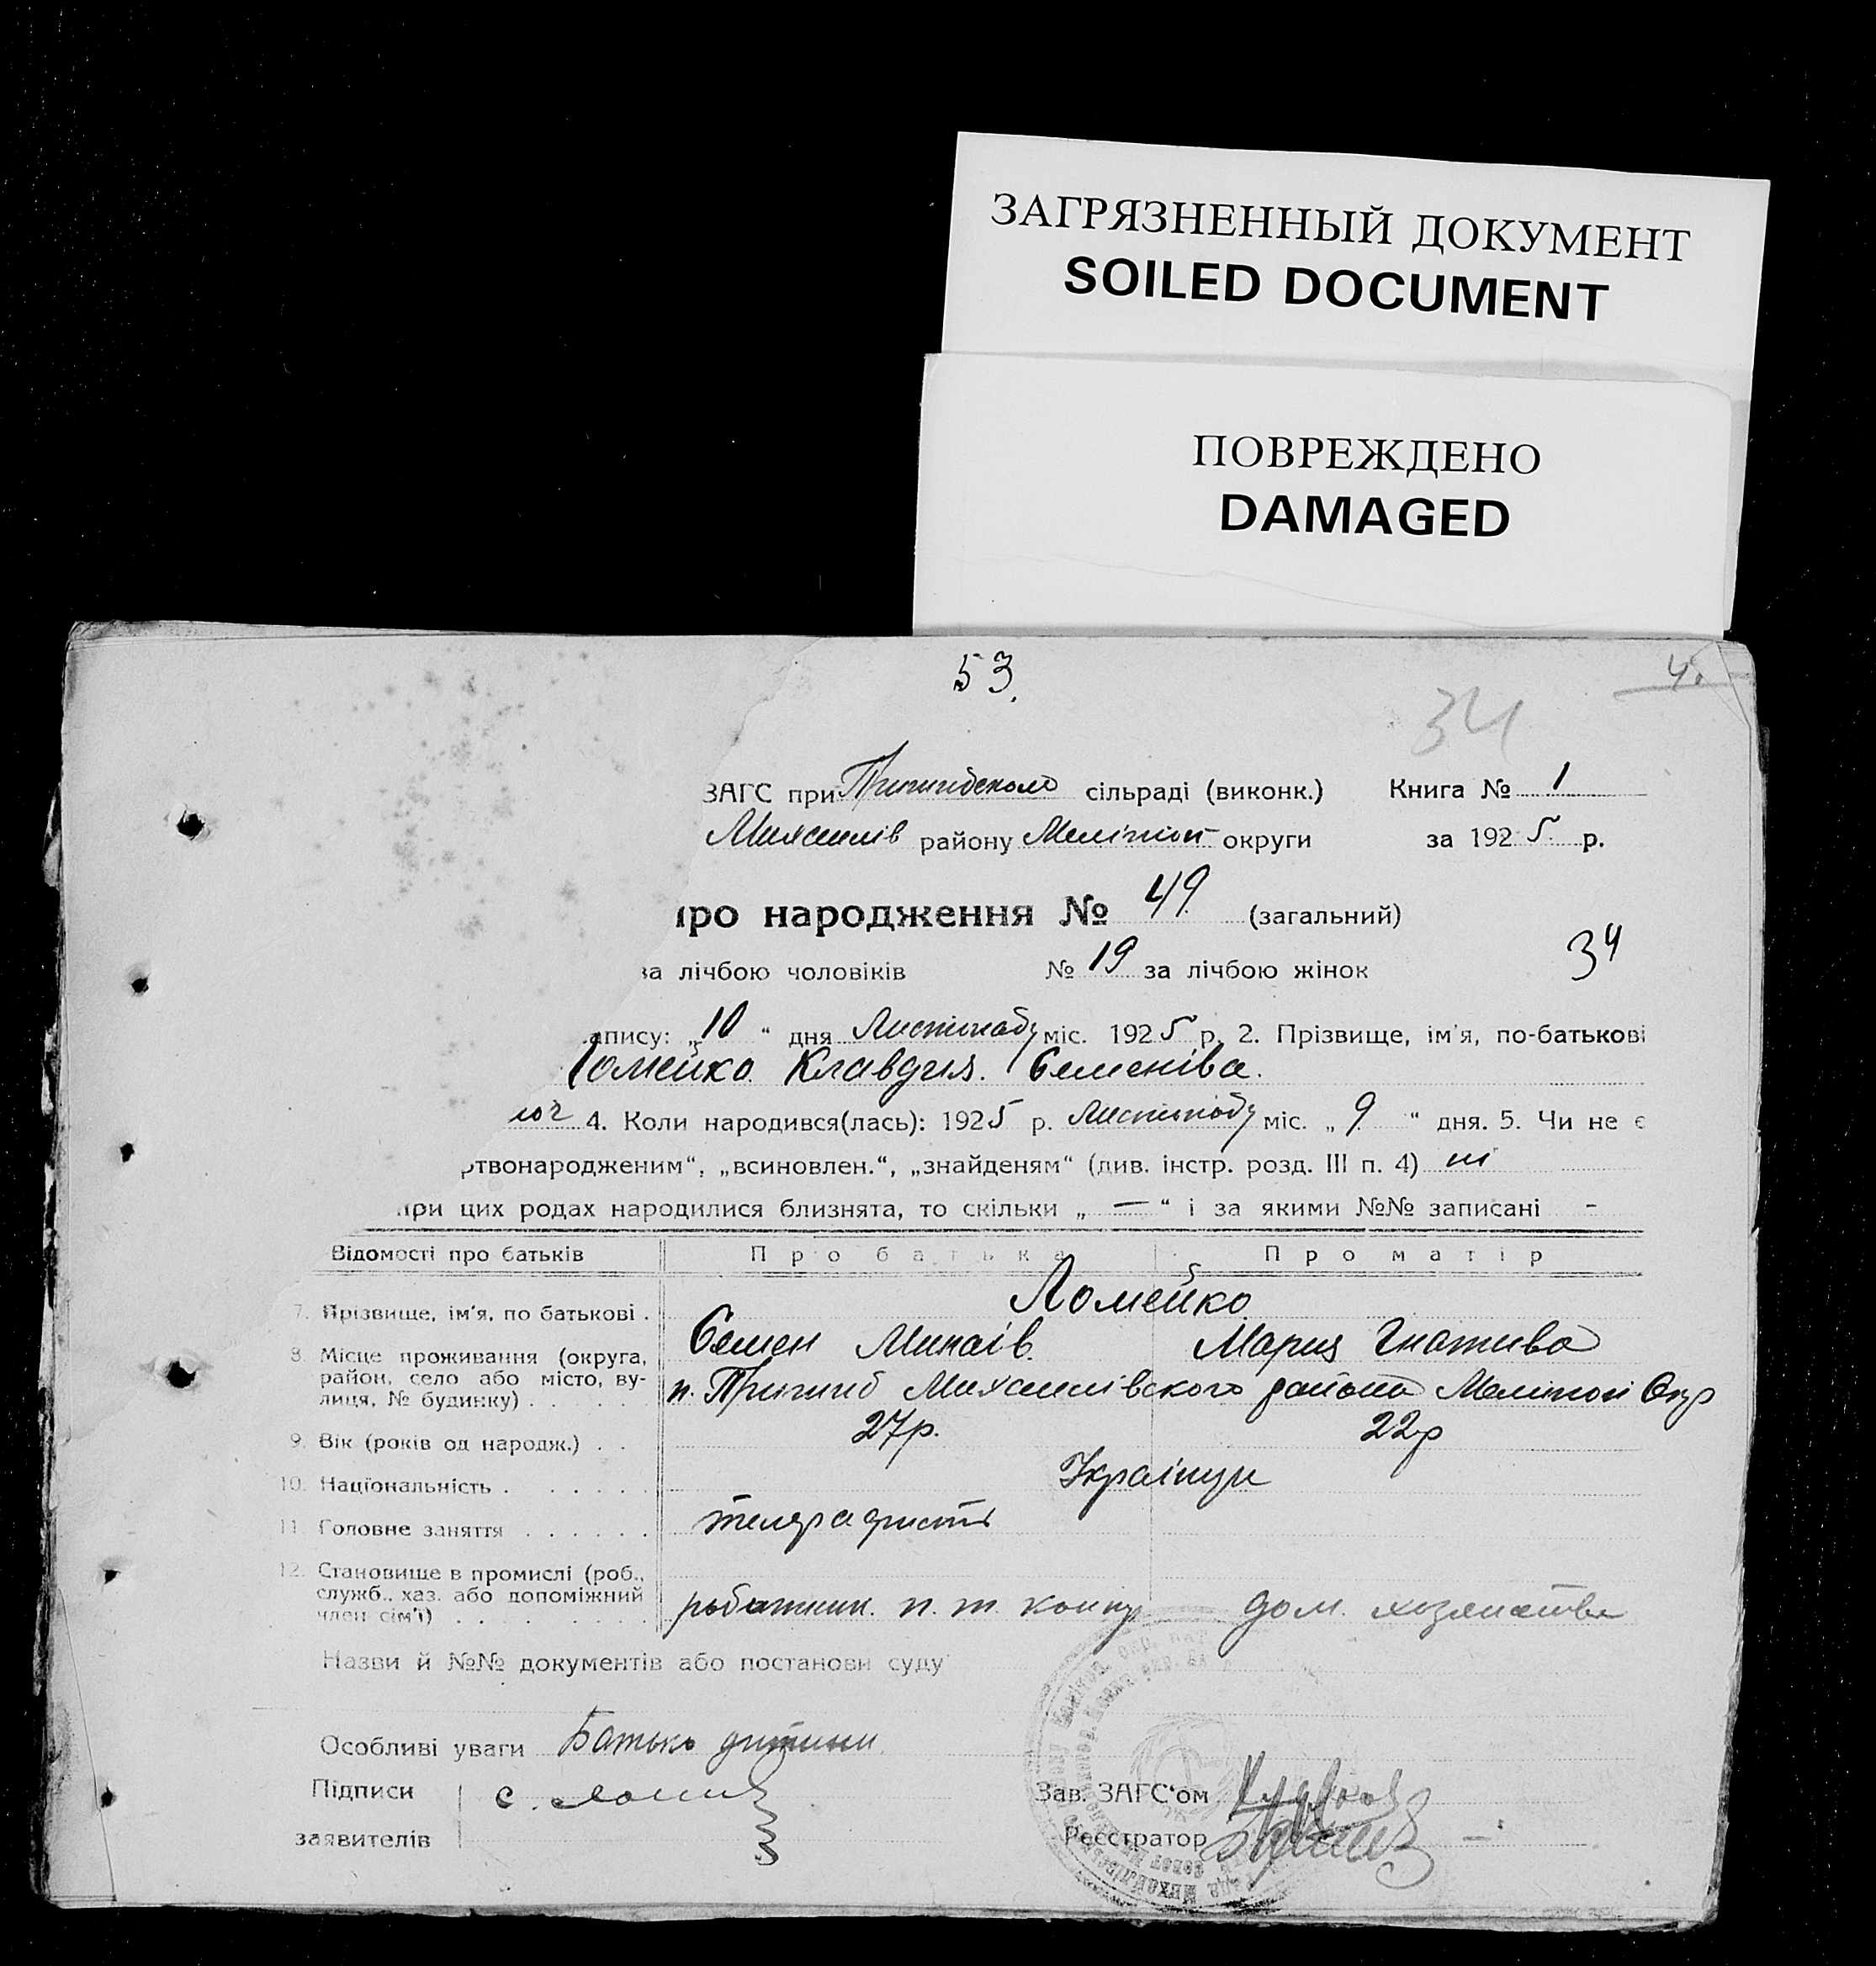 ЗАГРЯЗНЕННЫЙ ДОКУМЕНТ
SOILED DOCUMENT
ПОВРЕЖДЕНО
DAMAGED
53.
4.
34
ЗАГС при сільраді (виконк.) Книга № 1
району Меліпіоп округи за 1925 р.
про народження № 49 (загальний)
за лічбою чоловіків № 19 за лічбою жінок 34
апису: „10“ дня Листопаду міс. 1925 р. 2. Прізвище, ім'я, по-батькові
Ломейко Клавдия. Семенівa.
4. Коли народився(лась): 1925 р. Листопаду міс. „9“ дня. 5. Чи не є
ртвонародженим“, „всиновлен.“, „знайденям“ (див. інстр. розд. III п. 4) ні
при цих родах народилися близнята, то скільки „—“ і за якими №№ записані -
Відомості про батьків Про батька Про матір
7. Прізвище, ім'я, по батькові . Ломейко
Семен Минаів. Мария Гнатива
8. Місце проживання (округа, район, село або місто, ву-
лиця, № будинку) . . . . . п. Пришиб Михайлівского района Меліпіоп Окр
9. Вік (років од народж.) . . 27р. 22р
10. Національність . . . . . . Українци
11. Головне заняття . . . . . . телеграфист
12. Становище в промислі (роб.,
служб., хаз. або допоміжний
член сім'ї) . . . . . . . робатник. п. т. конт дом. хозяйства
Назви й №№ документів або постанови суду
Особливі уваги Батько дитини
Підписи
заявителів
Зав. ЗАГС'ом
Реєстратор